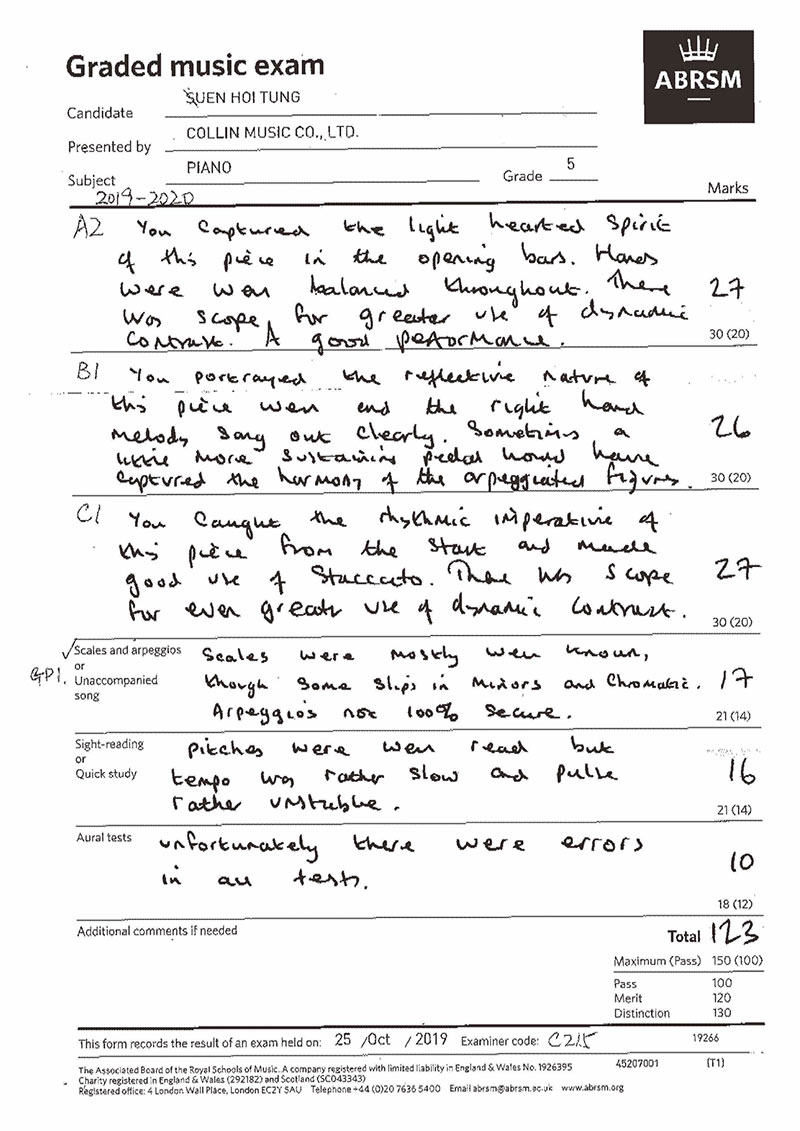 Graded music exam
ABRSM
Candidate SUEN HOI TUNG
Presented by COLLIN MUSIC CO., LTD.
Subject PIANO Grade 5
2019-2020 Marks
A2 You captured the light hearted spirit
of this piece in the opening bars. Hands
were well balanced throughout. There 27
was scope for greater use of dynamic
contrast. A good performance. 30 (20)
B1 You portrayed the reflective nature of
this piece well and the right hand
melody sang out clearly. Sometimes a 26
little more sustaining pedal would have
captured the harmony of the arpeggiated figures. 30 (20)
C1 You caught the rhythmic imperative of
this piece from the start and made
good use of staccato. There was scope 27
for even greater use of dynamic contrast. 30 (20)
✓ Scales and arpeggios Scales were mostly well known,
or
GP1. Unaccompanied though some slips in minors and chromatic. 17
song Arpeggios not 100% secure. 21 (14)
Sight-reading pitches were well read but
or
Quick study tempo was rather slow and pulse 16
rather unstable. 21 (14)
Aural tests unfortunately there were errors
in all tests. 10
18 (12)
Additional comments if needed Total 123
Maximum (Pass) 150 (100)
Pass 100
Merit 120
Distinction 130
This form records the result of an exam held on: 25 /Oct /2019 Examiner code: C215 19266
The Associated Board of the Royal Schools of Music. A company registered with limited liability in England & Wales No. 1926395 45207001 (T1)
Charity registered in England & Wales (292182) and Scotland (SC043343)
Registered office: 4 London Wall Place, London EC2Y 5AU Telephone +44 (0)20 7636 5400 Email abrsm@abrsm.ac.uk www.abrsm.org